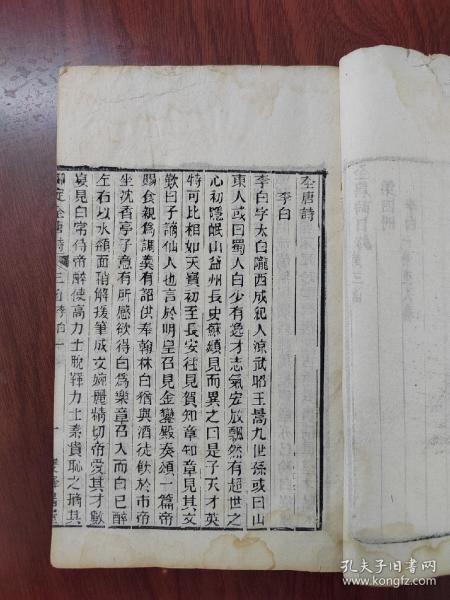 全唐詩
李白
李白字太白隴西成紀人涼武昭王暠九世孫或曰山
東人或曰蜀人白少有逸才志氣宏放飄然有超世之
心初隱岷山益州長史蘇頲見而異之曰是子天才英
特可比相如天寶初至長安往見賀知章知章見其文
歎曰子謫仙人也言於明皇召見金鑾殿奏頌一篇帝
賜食親為調羹有詔供奉翰林白猶與酒徒飲於市帝
坐沈香亭子意有所感欲得白為樂章召入而白已醉
左右以水頮面稍解援筆成文婉麗精切帝愛其才數
宴見白常侍帝醉使高力士脫鞾力士素貴恥之摘其
御定全唐詩
三函李白一
一
孔夫子旧书网
www.kongfz.com